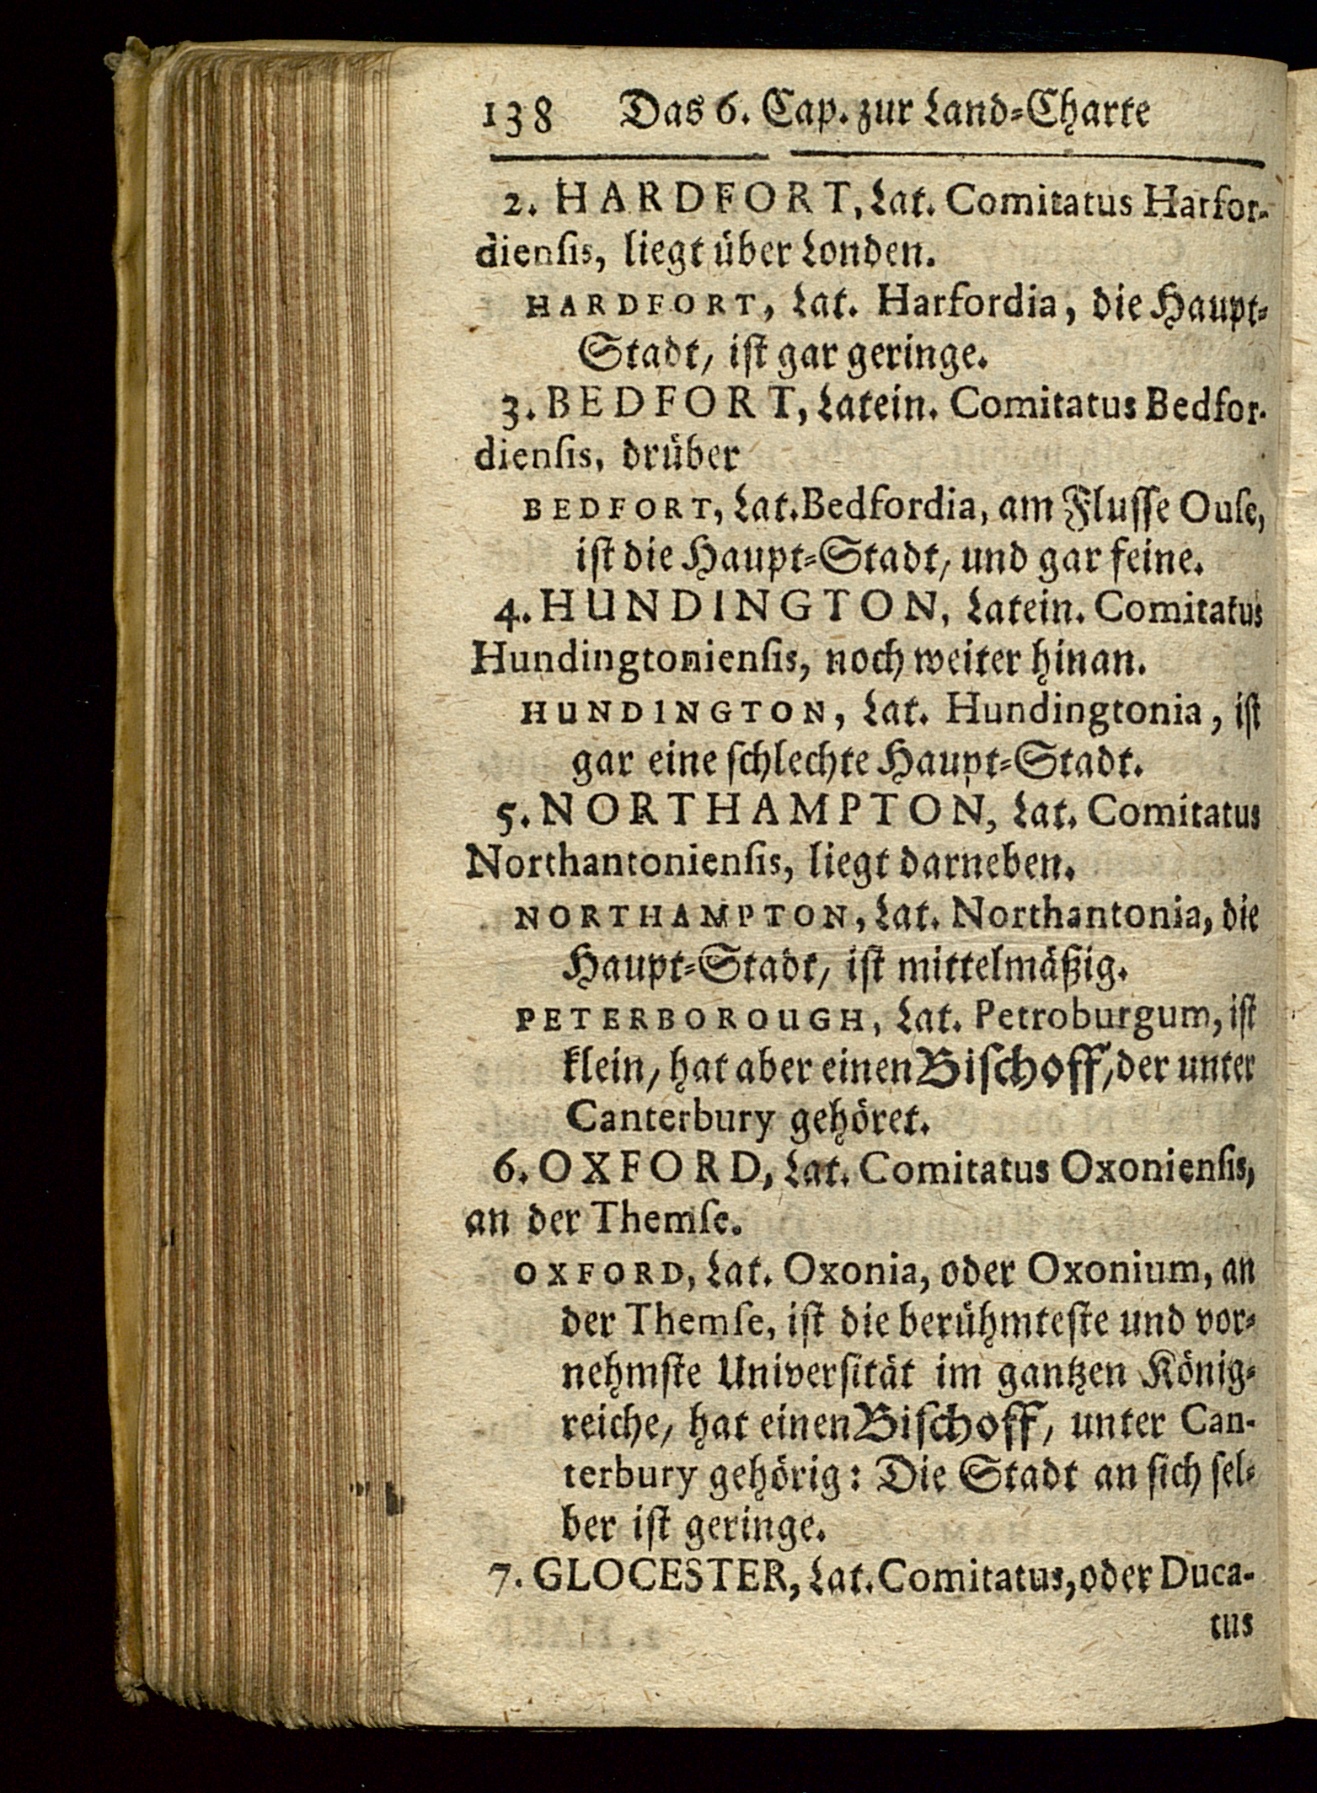 138 Das 6. Cap. zur Land-Charte
2. HARDFORT, Lat. Comitatus Harfor-
dienſis, liegt über Londen.
HARDFORT, Lat. Harfordia, die Haupt-
Stadt, iſt gar geringe.
3. BEDFORT, Latein. Comitatus Bedfor-
dienſis, drüber
BEDFORT, Lat. Bedfordia, am Fluſſe Ouſe,
iſt die Haupt-Stadt, und gar feine.
4. HUNDINGTON, Latein. Comitatus
Hundingtonienſis, noch weiter hinan.
HUNDINGTON, Lat. Hundingtonia, iſt
gar eine ſchlechte Haupt-Stadt.
5. NORTHAMPTON, Lat. Comitatus
Northantonienſis, liegt darneben.
NORTHAMPTON, Lat. Northantonia, die
Haupt-Stadt, iſt mittelmäßig.
PETERBOROUGH, Lat. Petroburgum, iſt
klein, hat aber einen Biſchoff, der unter
Canterbury gehöret.
6. OXFORD, Lat. Comitatus Oxonienſis,
an der Themſe.
OXFORD, Lat. Oxonia, oder Oxonium, an
der Themſe, iſt die berühmteſte und vor-
nehmſte Univerſität im gantzen König-
reiche, hat einen Biſchoff, unter Can-
terbury gehörig: Die Stadt an ſich ſel-
ber iſt geringe.
7. GLOCESTER, Lat. Comitatus, oder Duca-
tus